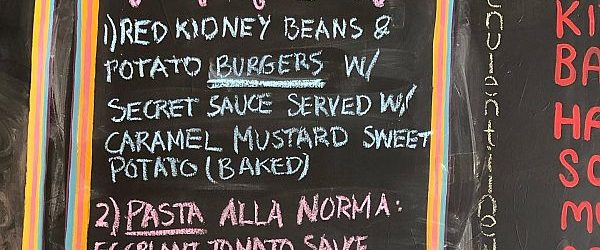 1) RED KIDNEY BEANS &
POTATO BURGERS W/
SECRET SAUCE SERVED W/
CARAMEL MUSTARD SWEET
POTATO (BAKED)
2) PASTA ALLA NORMA:
EGGPLANT TOMATO SAUCE
KI
BA
HA
SO